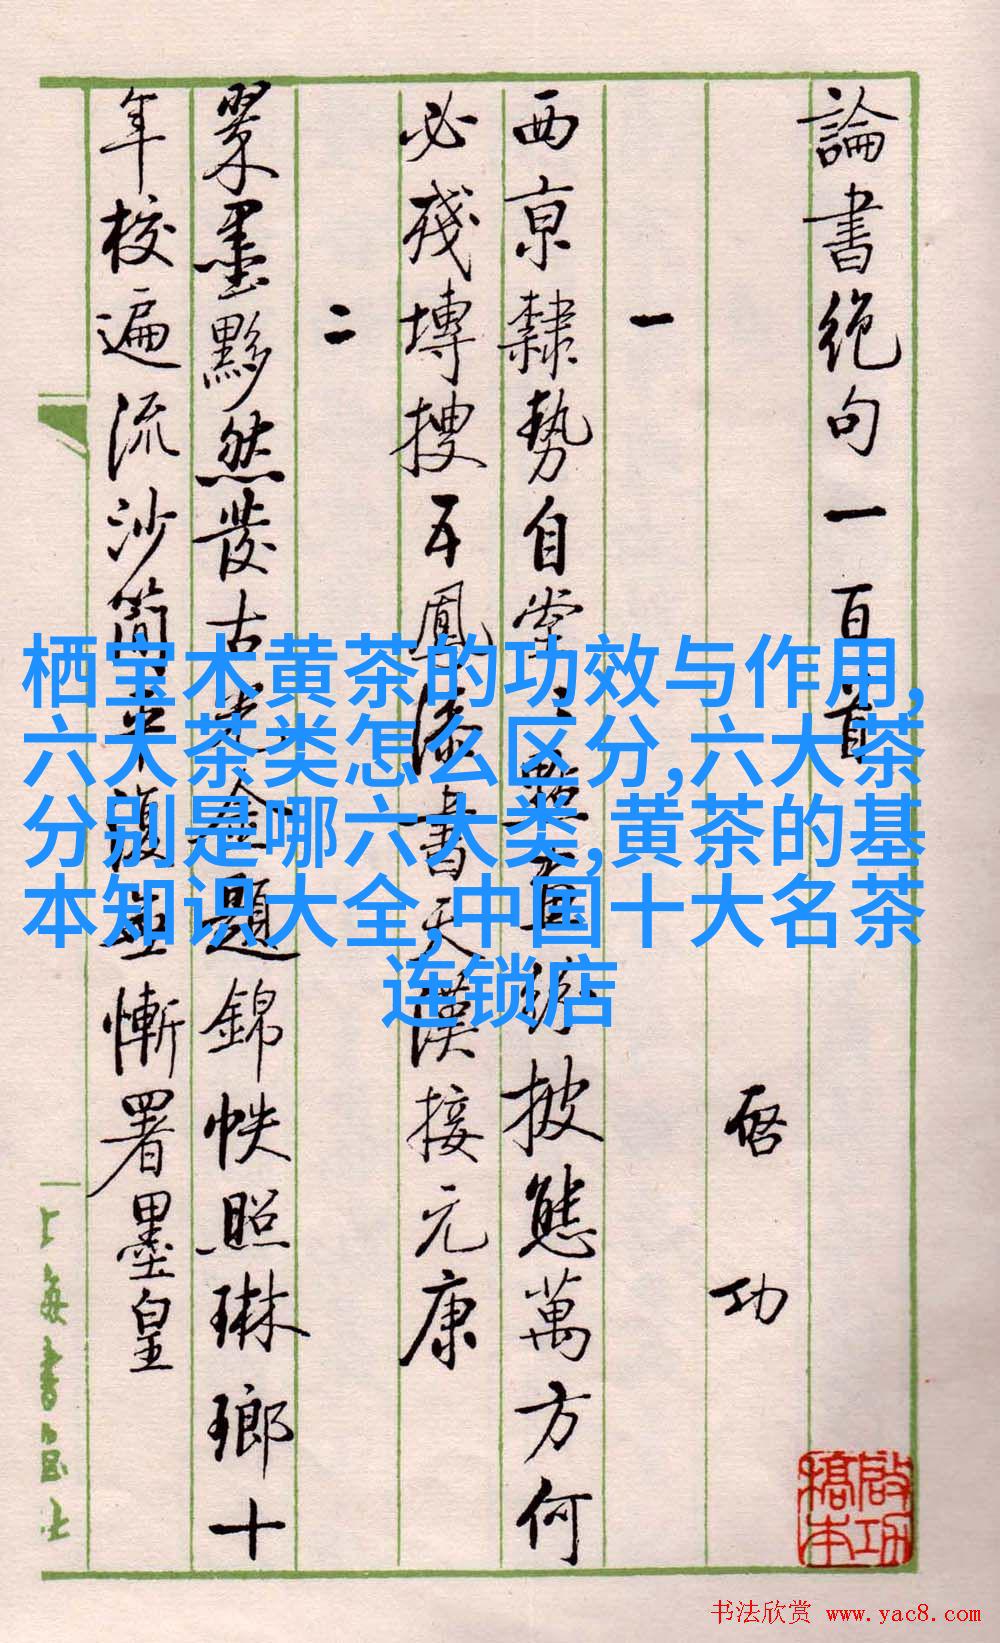 論書絶句一百首
启功
一
西京隸勢自堂堂點畫紛披態萬方何
必殘塼搜五鳳漆書天漢接元康
二
翠墨黟然發古光金題錦帙照琳瑯十
年校遍流沙簡平復無慚署墨皇
上海書画社
啟功槁本
栖宝木黄茶的功效与作用,
六大茶类怎么区分,六大茶
分别是哪六大类,黄茶的基
本知识大全,中国十大名茶
连锁店
书法欣赏 www.yac8.com